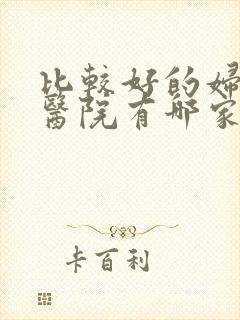 比較好的婦
醫院有哪家
卡百利